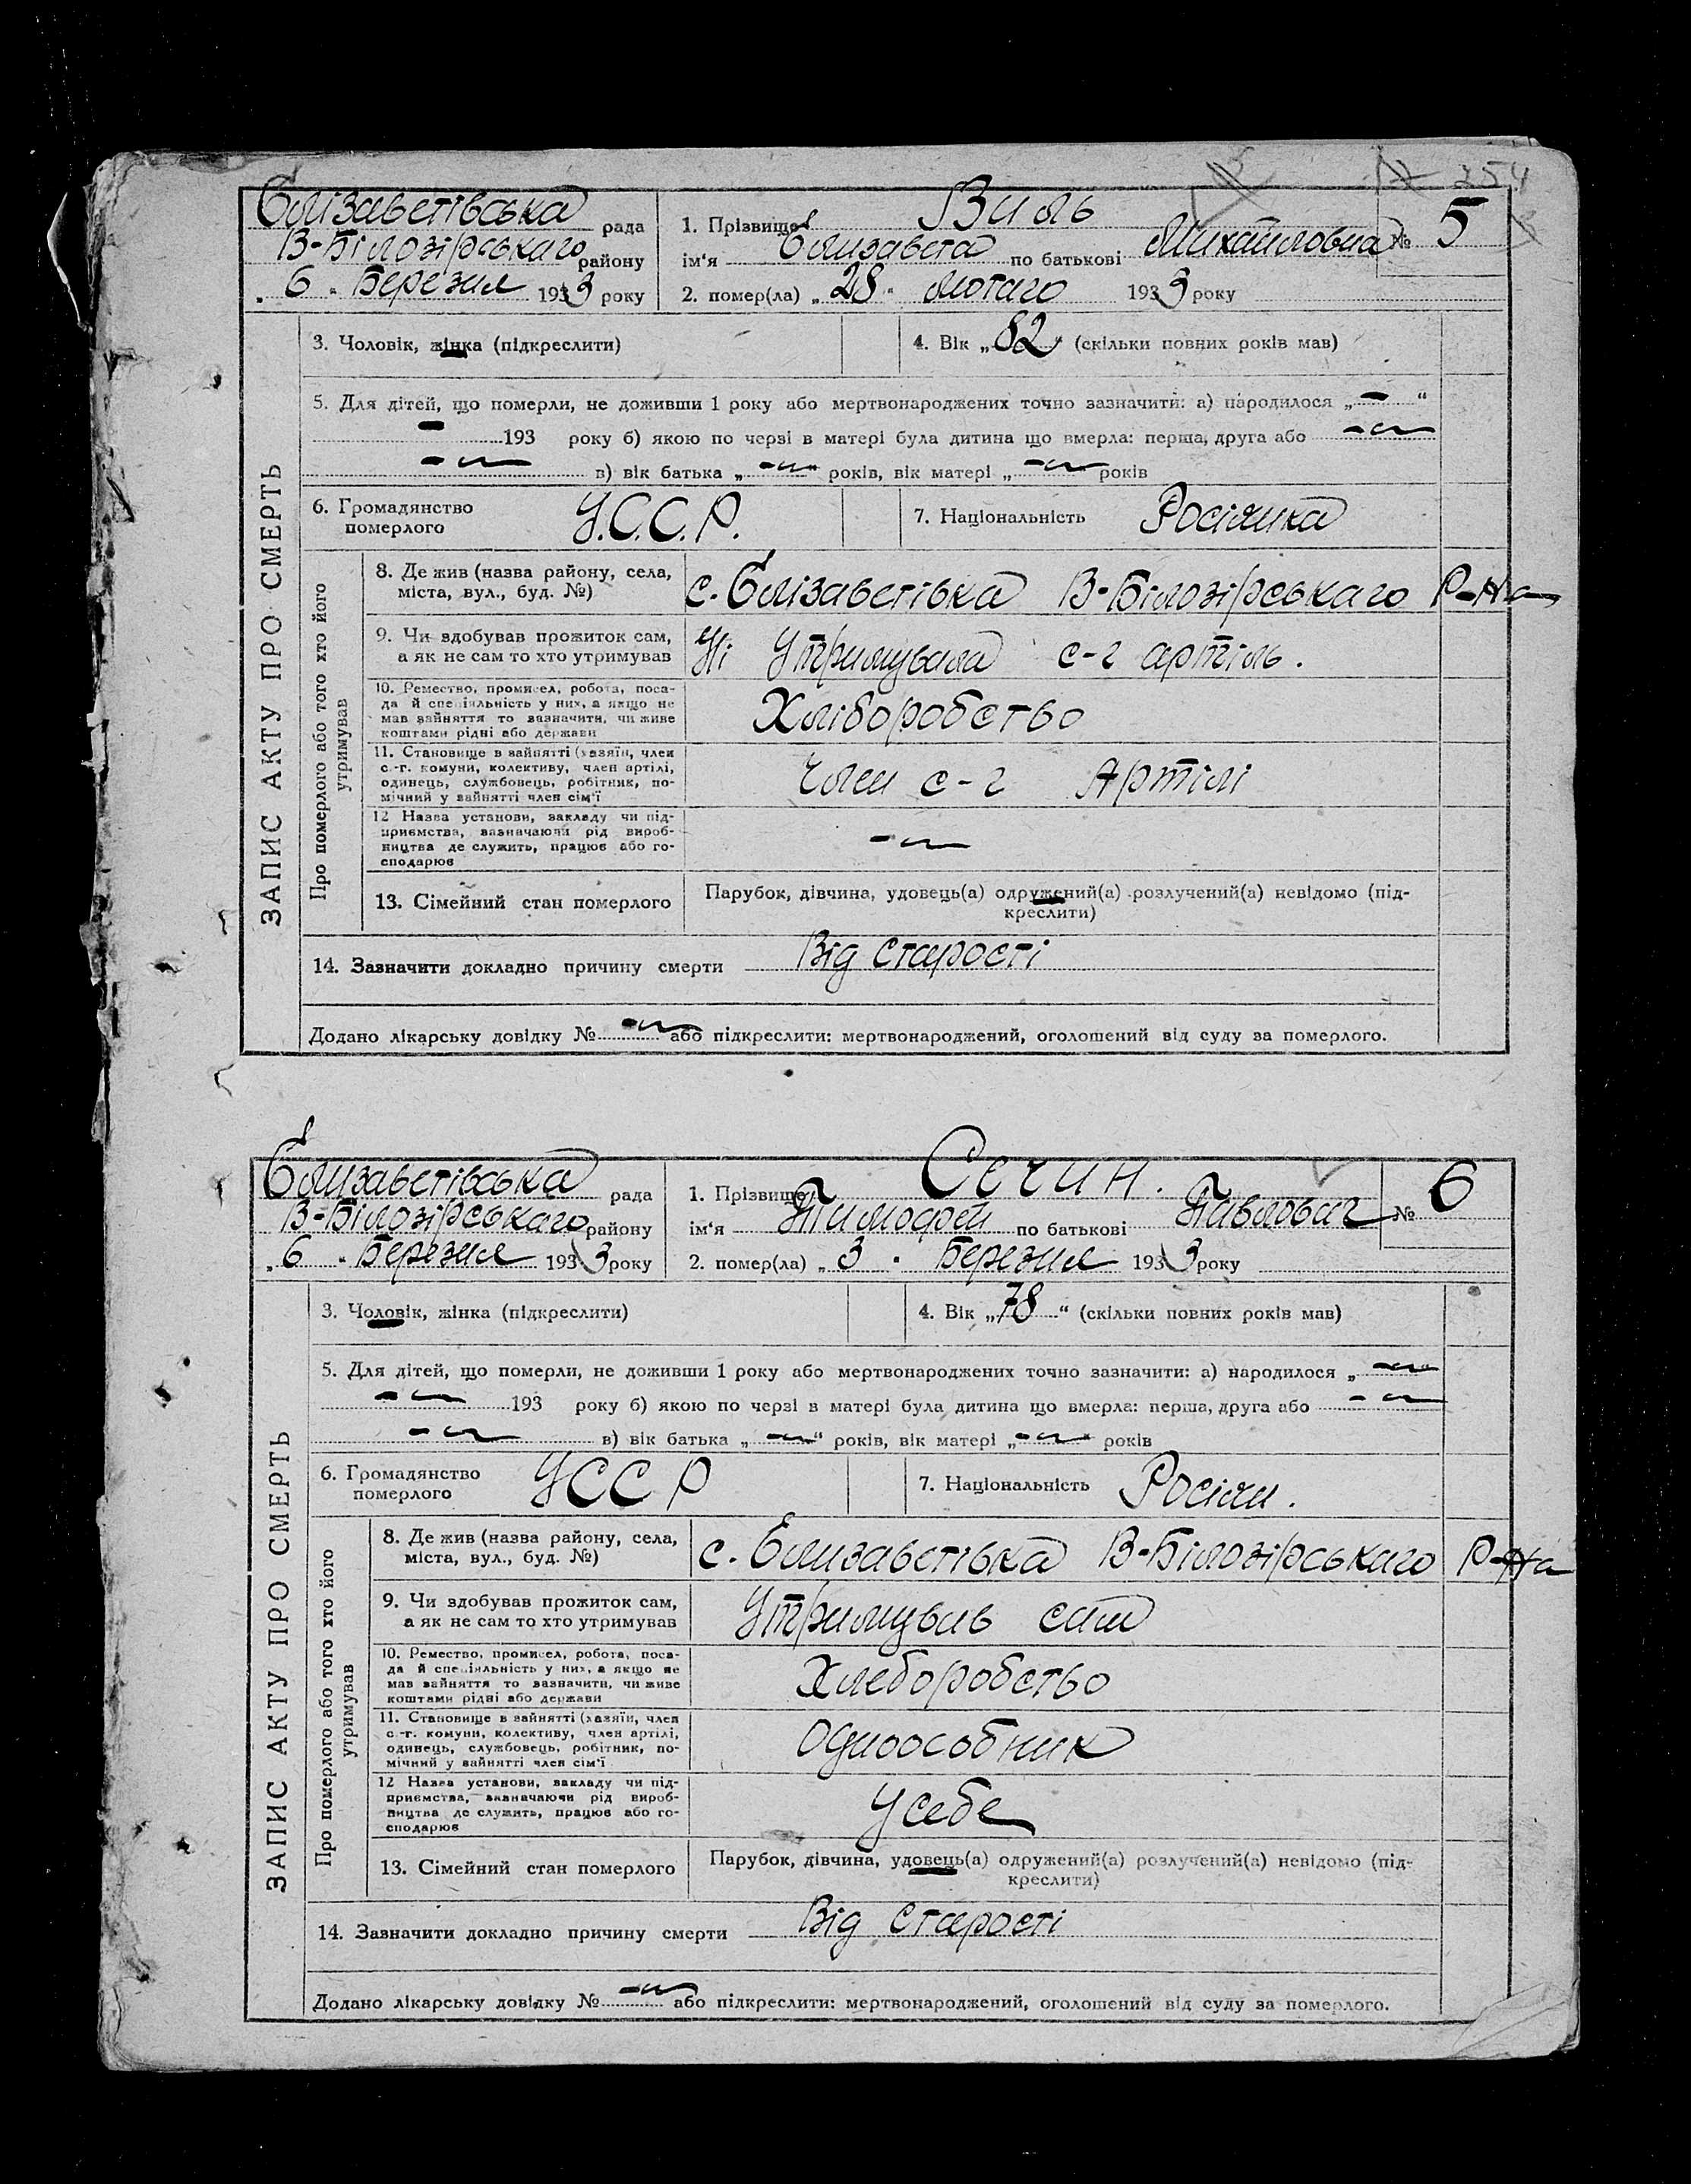 254
Єлізаветівська рада
В-Білозірського району
„ 6 " Березня 1933 року
1. Прізвище Виль
ім'я Єлизавета по батькові Михайловна № 5
2. помер(ла) „ 28 " лютаго 1933 року
ЗАПИС АКТУ ПРО СМЕРТЬ
3. Чоловік, жінка (підкреслити)
4. Вік „ 82 " (скільки повних років мав)
5. Для дітей, що померли, не доживши 1 року або мертвонароджених точно зазначити: а) народилося „ — "
— 193 року б) якою по черзі в матері була дитина що вмерла: перша, друга або —"—
—"— в) вік батька „ —"— " років, вік матері „ —"— років
6. Громадянство
померлого У.С.С.Р.
7. Національність Росіянка
Про померлого або того хто його
утримував
8. Де жив (назва району, села,
міста, вул., буд. №) с. Єлізаветівка В-Білозірськаго Р-на
9. Чи здобував прожиток сам,
а як не сам то хто утримував Ні Утримувала с-г артіль.
10. Ремество, промисел, робота, поса-
да й спеціяльність у них, а якщо не
мав зайняття то зазначити, чи живе
коштами рідні або держави Хліборобство
11. Становище в зайнятті (хазяїн, член
с.-г. комуни, колективу, член артілі,
одинець, службовець, робітник, по-
мічний у зайнятті член сім'ї Член с-г Артілі
12 Назва установи, закладу чи під-
приємства, зазначаючи рід вироб-
ництва де служить, працює або го-
сподарює —"—
13. Сімейний стан померлого
Парубок, дівчина, удовець(а) одружений(а) розлучений(а) невідомо (під-
креслити)
14. Зазначити докладно причину смерти Від Старості
Додано лікарську довідку № —"— або підкреслити: мертвонароджений, оголошений від суду за померлого.
Єлизаветівська рада
В-Білозірськаго району
„ 6 " Березня 1933 року
1. Прізвище Сечин.
ім'я Тимофей по батькові Павлович № 6
2. помер(ла) „ 3 " Березня 1933 року
ЗАПИС АКТУ ПРО СМЕРТЬ
3. Чоловік, жінка (підкреслити)
4. Вік „ 78 " (скільки повних років мав)
5. Для дітей, що померли, не доживши 1 року або мертвонароджених точно зазначити: а) народилося „ —"—
—"— 193 року б) якою по черзі в матері була дитина що вмерла: перша, друга або —"—
—"— в) вік батька „ —"— " років, вік матері „ —"— " років
6. Громадянство
померлого УССР
7. Національність Росіян.
Про померлого або того хто його
утримував
8. Де жив (назва району, села,
міста, вул., буд. №) с. Єлизаветівка В-Білозірськаго Р-на
9. Чи здобував прожиток сам,
а як не сам то хто утримував Утримував сам
10. Ремество, промисел, робота, поса-
да й спеціяльність у них, а якщо не
мав зайняття то зазначити, чи живе
коштами рідні або держави Хлеборобство
11. Становище в зайнятті (хазяїн, член
с.-г. комуни, колективу, член артілі,
одинець, службовець, робітник, по-
мічний у зайнятті член сім'ї Одноособник
12 Назва установи, закладу чи під-
приємства, зазначаючи рід вироб-
ництва де служить, працює або го-
сподарює У себе
13. Сімейний стан померлого
Парубок, дівчина, удовець(а) одружений(а) розлучений(а) невідомо (під-
креслити)
14. Зазначити докладно причину смерти Від Старості
Додано лікарську довідку № —"— або підкреслити: мертвонароджений, оголошений від суду за померлого.